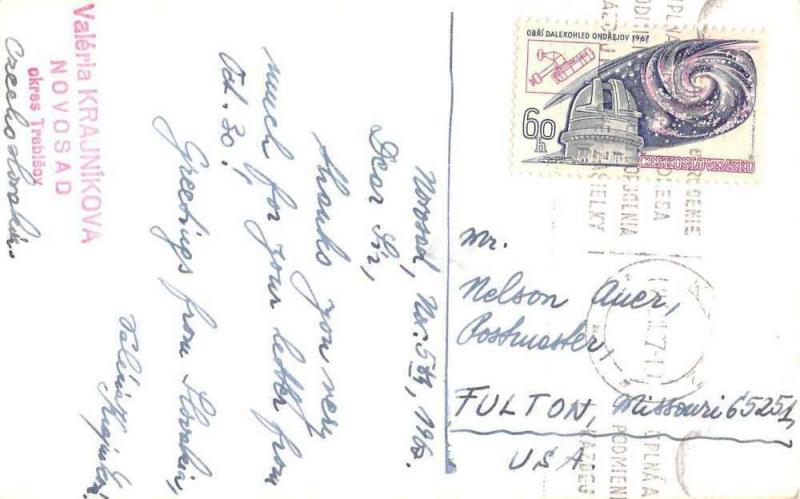 Valéria KRAJNÍKOVA
NOVOSAD
okres Trebišov
Czechoslovakia.
Novosad, Nov. 5th, 196
Dear Sir,
Thanks you very
much for your letter from
Oct. 30!
Greetings from Slovakia,
Valéria
OBŘÍ DALEKOHLED ONDŘEJOV 1967
60h
ČESKOSLOVENSKO
Mr.
Nelson Auer,
Postmaster
FULTON, Missouri 65251,
USA
ÚPLNÁ A
PODMIEN
KAŽDEJ